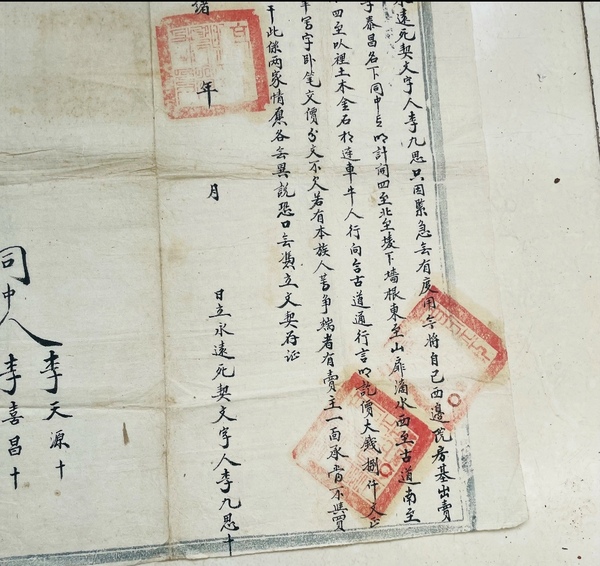 永遠死契文字人李九思只因緊急無有度用今將自己西邊院房基出賣
李泰昌名下同中言明計開四至北至堎下墻根東至山扉滴水西至古道南至
四至以裡土木金石相連車牛人行向合古道通行言明訖價大錢捌仟文正
筆寫字卧笔交價分文不欠若有本族人等争端者有賣主一面承當不與買
干此係兩家情愿各無異說恐口無憑立文契存证
緒 年 月 日立永遠死契文字人李九思十
同中人 李天源十
李喜昌十